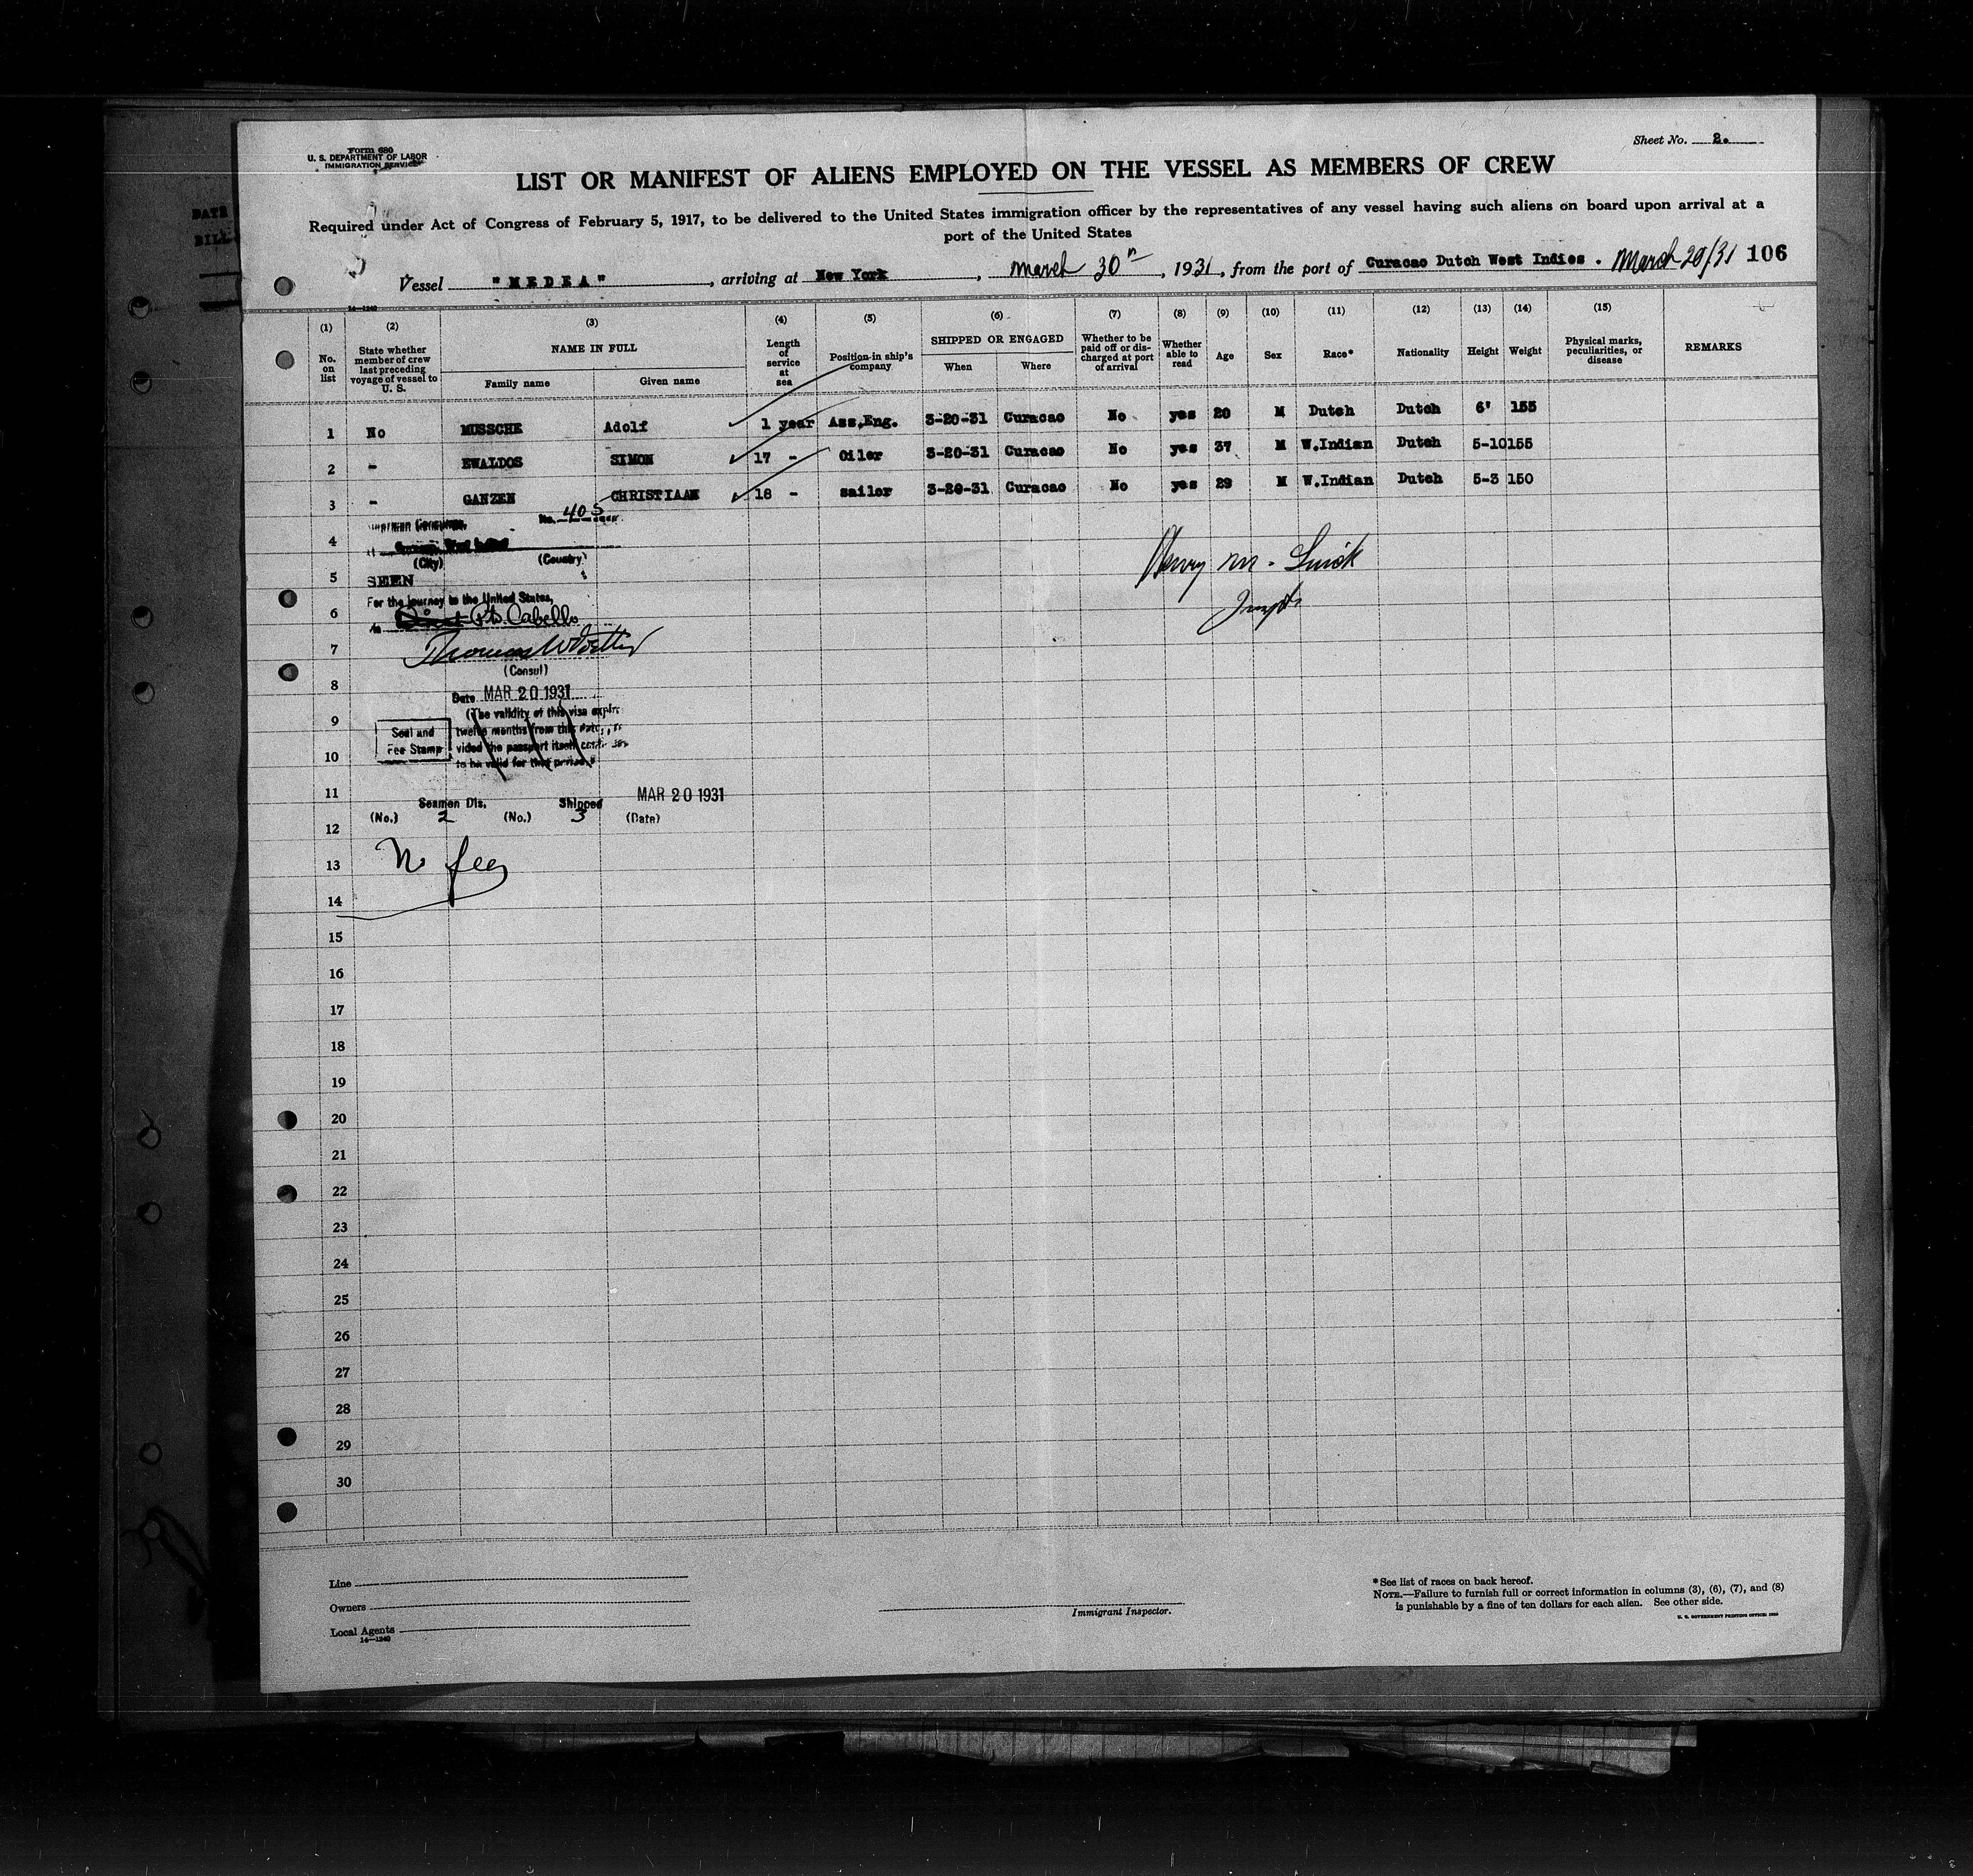 Form 680
U. S. DEPARTMENT OF LABOR
IMMIGRATION SERVICE
Sheet No. 2.
LIST OR MANIFEST OF ALIENS EMPLOYED ON THE VESSEL AS MEMBERS OF CREW
Required under Act of Congress of February 5, 1917, to be delivered to the United States immigration officer by the representatives of any vessel having such aliens on board upon arrival at a
port of the United States
Vessel "MEDEA", arriving at New York, March 30th, 1931, from the port of Curacao Dutch West Indies. March 20/31 106
14—1240
(1) (2) (3) (4) (5) (6) (7) (8) (9) (10) (11) (12) (13) (14) (15)
No. on list
State whether member of crew last preceding voyage of vessel to U. S.
NAME IN FULL
Family name Given name
Length of service at sea
Position in ship's company
SHIPPED OR ENGAGED
When Where
Whether to be paid off or discharged at port of arrival
Whether able to read
Age
Sex
Race*
Nationality
Height
Weight
Physical marks, peculiarities, or disease
REMARKS
1 No MUSSCHE Adolf 1 year Ass.Eng. 3-20-31 Curacao No yes 20 M Dutch Dutch 6' 155
2 - EWALDOS SIMON 17 - Oiler 3-20-31 Curacao No yes 37 M W.Indian Dutch 5-10 155
3 - GANZEN CHRISTIAAN 18 - sailor 3-20-31 Curacao No yes 29 M W.Indian Dutch 5-3 150
No. 405
4
(City) (Country)
5
SEEN
For the journey to the United States,
6
Pto. Cabello
7
(Consul)
8
Date MAR 20 1931
(The validity of this visa expires
9
Seal and twelve months from this date, pro-
Fee Stamp vided the passport itself continues
10
to be valid for that period.)
11
Seamen Dis. Shipped MAR 20 1931
(No.) 2 (No.) 3 (Date)
12
Henry M.
Inspt.
13 No fee
14
15
16
17
18
19
20
21
22
23
24
25
26
27
28
29
30
Line
Owners
Local Agents
14—1240
Immigrant Inspector.
* See list of races on back hereof.
NOTE.—Failure to furnish full or correct information in columns (3), (6), (7), and (8)
is punishable by a fine of ten dollars for each alien. See other side.
U. S. GOVERNMENT PRINTING OFFICE:
DATE
BILL